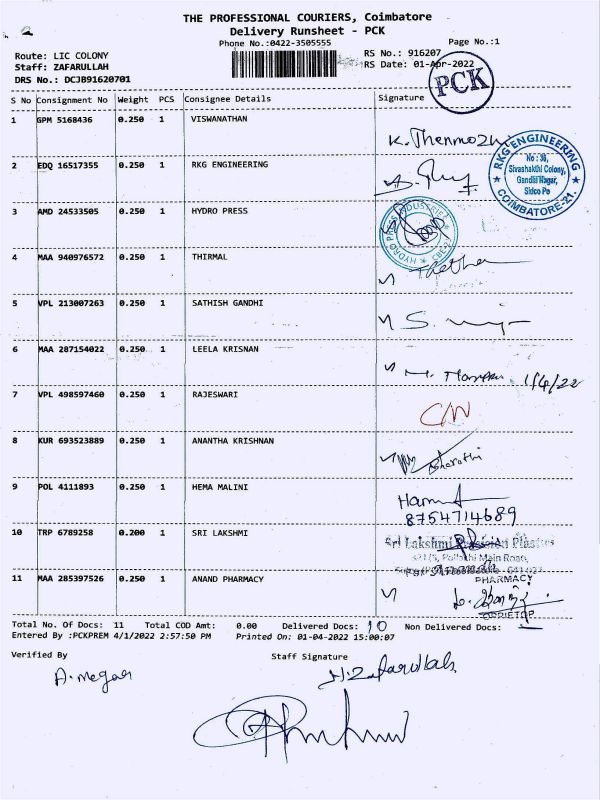 THE PROFESSIONAL COURIERS, Coimbatore
Delivery Runsheet - PCK
Phone No.:0422-3505555
Page No.:1
Route: LIC COLONY
RS No.: 916207
Staff: ZAFARULLAH
RS Date: 01-Apr-2022
DRS No.: DCJB91620701
PCK
S No Consignment No Weight PCS Consignee Details Signature
1 GPM 5168436 0.250 1 VISWANATHAN
K. Thenmozhi
2 EDQ 16517355 0.250 1 RKG ENGINEERING
RKG ENGINEERING
No : 38,
Sivashakthi Colony,
Gandhi Nagar,
Sidco Po
COIMBATORE-21.
3 AMD 24533505 0.250 1 HYDRO PRESS
HYDRO PRESS INDUSTRIES
4 MAA 940976572 0.250 1 THIRMAL
5 VPL 213007263 0.250 1 SATHISH GANDHI
6 MAA 287154022 0.250 1 LEELA KRISNAN
1/4/22
7 VPL 498597460 0.250 1 RAJESWARI
C/N
8 KUR 693523889 0.250 1 ANANTHA KRISHNAN
Bharathi
9 POL 4111893 0.250 1 HEMA MALINI
8754714689
10 TRP 6789258 0.200 1 SRI LAKSHMI
Sri Lakshmi Plastics
Pollachi Main Road,
11 MAA 285397526 0.250 1 ANAND PHARMACY
For
PHARMACY
Total No. Of Docs: 11 Total COD Amt: 0.00 Delivered Docs: 10 Non Delivered Docs:
Entered By :PCKPREM 4/1/2022 2:57:50 PM Printed On: 01-04-2022 15:00:07
Verified By
Staff Signature
H. Zafarullah